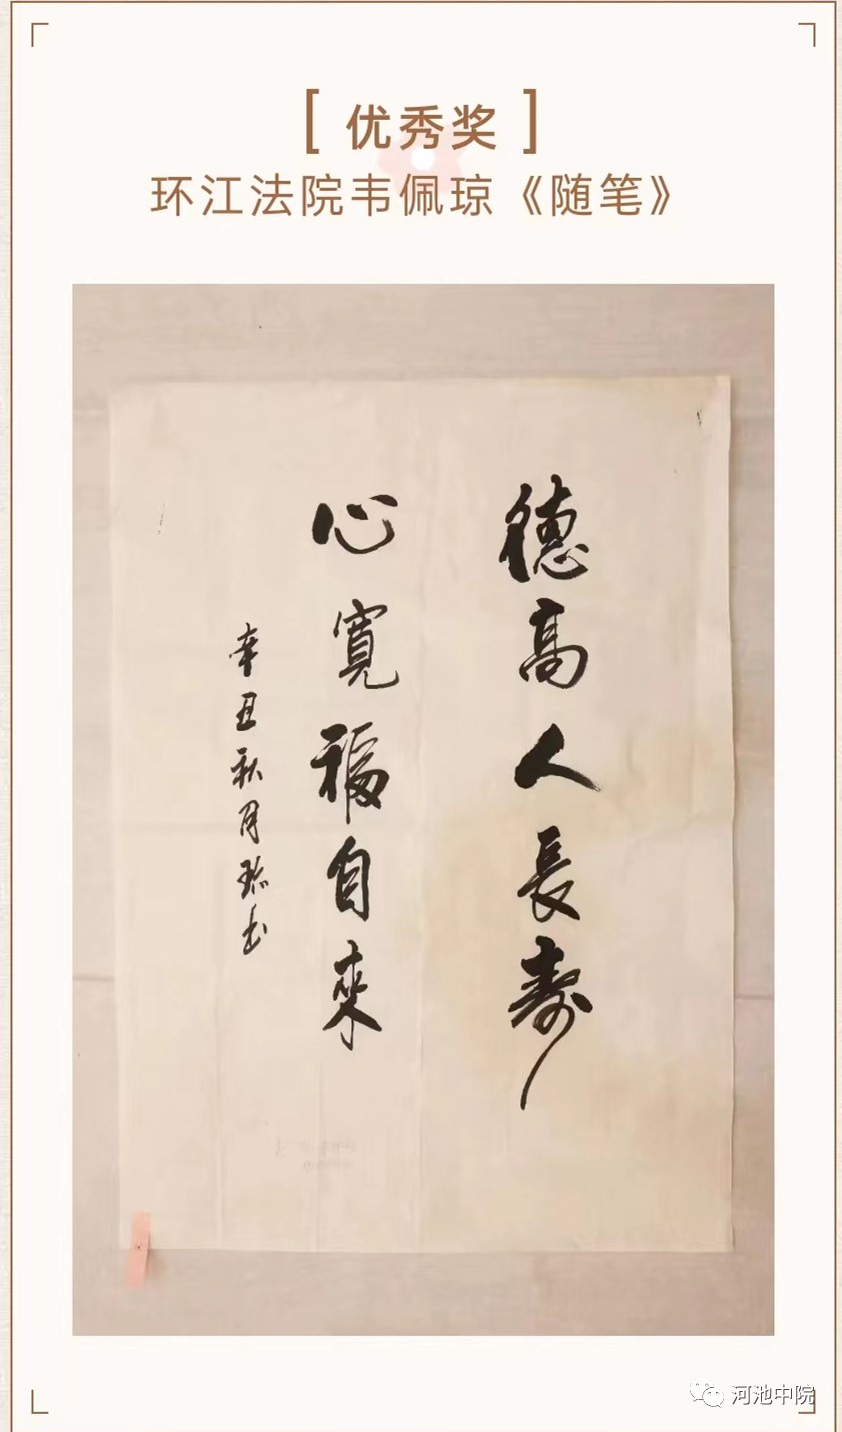 [ 优秀奖 ]
环江法院韦佩琼《随笔》
德高人長寿
心寬福自來
辛丑秋月琼书
河池中院